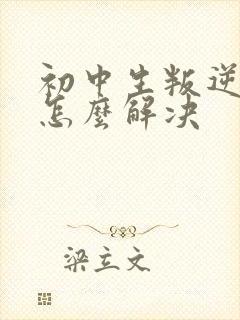 初中生叛逆
怎麽解决
梁立文